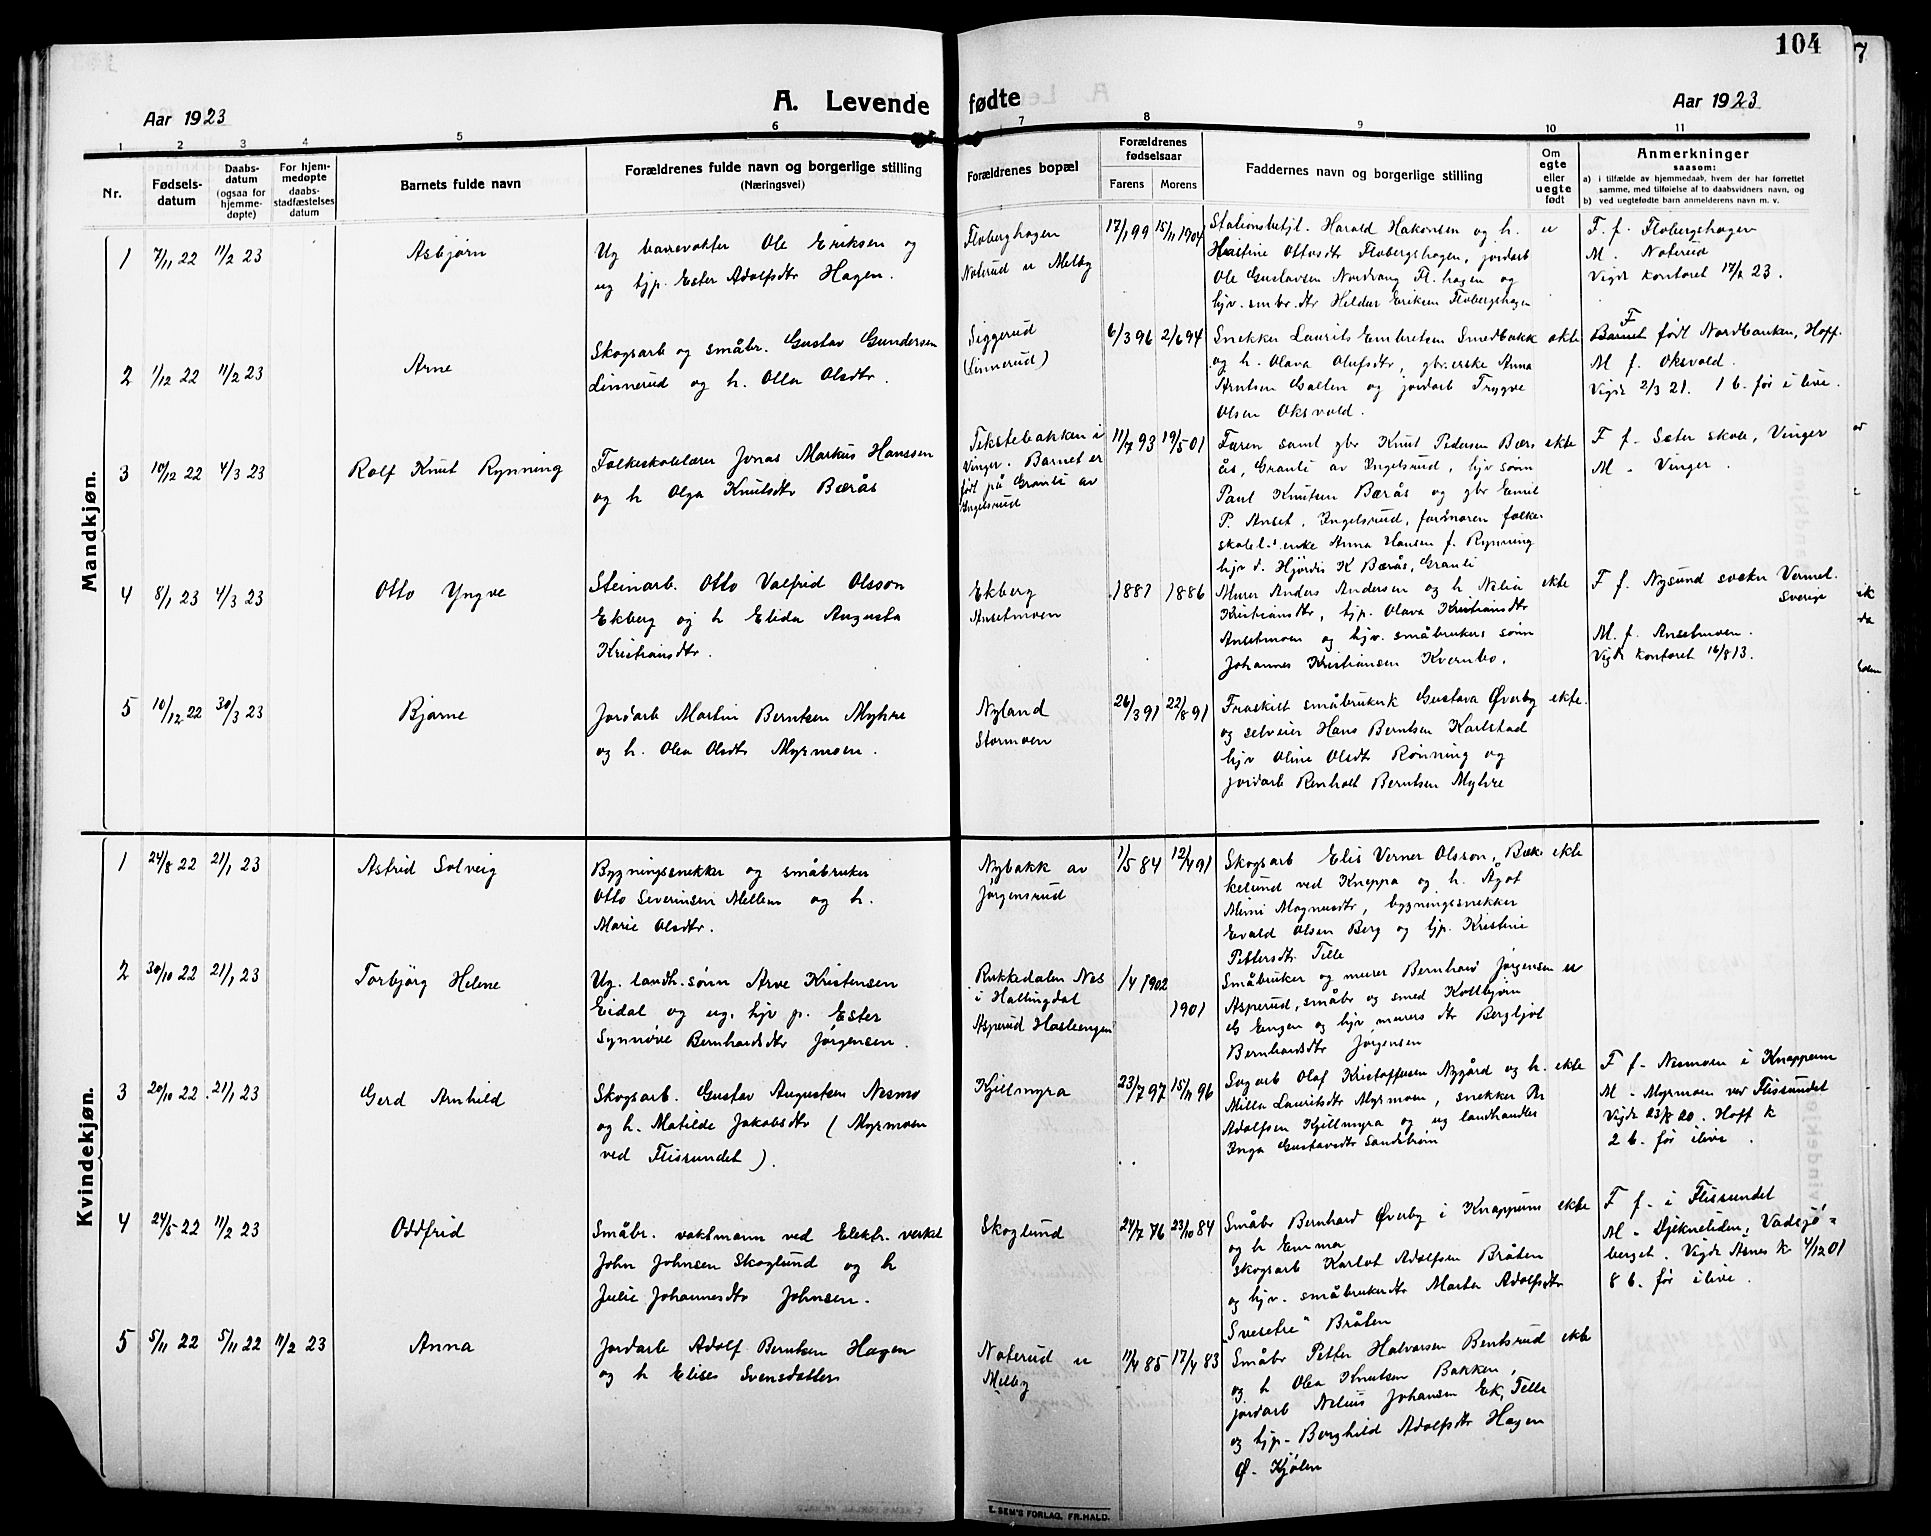 104
A. Levende fødte
Aar 1923
Aar 1923
1 2 3 4 5 6 7 8 9 10 11
Nr.
Fødsels-
datum
Daabs-
datum
(ogsaa for
hjemme-
døpte)
For hjem-
medøpte
daabs-
stadfæstelses
datum
Barnets fulde navn
Forældrenes fulde navn og borgerlige stilling
(Næringsvei)
Forældrenes bopæl
Forældrenes
fødselsaar
Farens Morens
Faddernes navn og borgerlige stilling
Om
egte
eller
uegte
født
Anmerkninger
saasom:
a) i tilfælde av hjemmedaab, hvem der har forrettet
samme, med tilføielse af to daabsvidners navn, og
b) ved uegtefødte barn anmelderens navn m. v.
Mandkjøn.
1 7/11 22 11/2 23
Asbjørn
Ug banevokter Ole Eriksen og
ug tjp. Ester Adolfsdtr Hagen.
Floberghagen
Noterud u Melby
17/1 99 15/11 1904
Stationsbetjt. Harald Hakonsen og h.
Hartine Ottosdtr Flobergshagen, jordarb
Ole Gustavsen Nordvang Fl.hagen og
hjv. smbr.dtr Hildur Eriksen Flobergshagen
u
F. f. Flobergshagen
M. Noterud
Vigde kontoret 17/2 23.
2 1/12 22 11/2 23
Arne
Skogsarb og småbr. Gustav Gundersen
Linnerud og h. Olla Olsdtr.
Siggerud
(Linnerud)
6/3 96 2/6 94
Snekker Laurits Embretsen Smedbakk
og h. Olava Olufsdtr, gbr.erske Anna
Arntsen Galten og jordarb Trygve
Olsen Oksvold.
ekte
F
Barnet født Nordbanken, Hoff.
M f. Oksvold.
Vigde 2/3 21. 1 b. før i live.
3 10/12 22 4/3 23
Rolf Knut Rynning
Folkeskolelærer Jonas Markus Hanssen
og h Olga Knutsdtr Bærås
Tekstebakken i
Vinger. Barnet er
født på Granli av
Ingelsrud
11/7 93 19/5 01
Faren samt gbr Knut Pedersen Bær-
ås, Granli av Ingelsrud, hjv sønn
Paul Knutsen Bærås og gbr Emil
P. Anset, Ingelsrud, farmoren folke-
skolel.s enke Anna Hansen f. Rynning
hjv d. Hjørdis K Bærås, Granli
ekte
F f. Sæter skole, Vinger
M - Vinger.
4 8/1 23 4/3 23
Otto Yngve
Steinarb. Otto Valfrid Olsson
Ekberg og h Elida Augusta
Kristiansdtr.
Ekberg
Ansetmoen
1881 1886
Murer Anders Andersen og h Nelia
Kristiansdtr, tjp. Olava Kristiansdtr
Ansetmoen og hjv. småbrukers sønn
Johannes Kristiansen Kvernbo.
ekte
F f. Nysund sockn Vermel.
Sverige
M. f. Ansetmoen.
Vigde kontoret 16/8 13.
5 10/12 22 30/3 23
Bjarne
Jordarb Martin Berntsen Myhre
og h. Olea Olsdtr Myrmoen.
Nyland
Stormoen
26/3 91 22/8 91
Fraskilt småbrukersk Gustava Øverby
og selveier Hans Berntsen Karlstad
hjv Oline Olsdtr Rønning og
jordarb Renholt Berntsen Myhre
ekte.
Kvindekjøn.
1 24/8 22 21/1 23
Astrid Solveig
Bygningssnekker og småbruker
Otto Severinsen Mellem og h.
Marie Olsdtr.
Nybakk av
Jørgensrud
1/5 84 12/4 91
Skogsarb Elis Verner Olsson, Bæk-
kelund ved Kneppa og h. Ågot
Mimi Magnusdtr, bygningssnekker
Evald Olsen Berg og tjp. Kristine
Pettersdtr Tille
ekte
2 30/10 22 21/1 23
Torbjørg Helene
Ug. landh.sønn Arve Kristensen
Eidal og ug. hjv p. Ester
Synnøve Bernhardsdtr Jørgensen.
Rukkedalen Nes
i Hallingdal
Asperud Hasleengen
1/4 1902
1901
Småbruker og murer Bernhard Jørgensen
Asperud, småbr og smed Kolbjørn
G Engen og hjv murers dtr Bergljot
Bernhardsdtr Jørgensen
u
3 20/10 22 21/1 23
Gerd Arnhild
Skogsarb. Gustav Augustsen Nesmo
og h. Matilde Jakobsdtr (Myrmoen
ved Flissundet).
Kjellmyra
23/7 97 15/11 96
Sagarb Olaf Kristoffersen Nygård og h.
Milla Lauritsdtr Myrmoen, snekker Br
Adolfsen Kjellmyra og ug landhandler
Inga Gustavsdtr Sandstrøm
ekte
F f- Nesmoen i Knappum
M - Myrmoen ved Flissundet
Vigde 23/8 20. Hoff k
2 b. før i live.
4 24/5 22 11/2 23
Oddfrid
Småbr. vaktmann ved Elektr. verket
John Johnsen Skoglund og h
Julie Johannesdtr Johnsen.
Skoglund
24/7 76 23/10 84
Småbr Bernhard Øverby i Knappum
og h Emma
skogsarb Karlot Adolfsen Bråten
og hjv. småbrukerdtr Marta Adolfsdtr
"Svesetre" Bråten
ekte
F f- i Flissundet
M - Djekneliden, Vadsjø-
berget. Vigde Åsnes k 4/12 01
8 b. før i live.
5 5/11 22 5/11 22 11/2 23
Anna
Jordarb Adolf Berntsen Hagen
og h Elise Svensdatter
Noterud u
Melby
11/4 85 17/4 83
Småbr Petter Halvorsen Bentsrud
og h Olea Knutsen Bakken,
jordarb Nelius Johansen Ek, Telle
og tjp. Borghild Adolfsdtr Hagen
Ø. Kjølen
ekte
E. SEM'S FORLAG, FR.HALD.